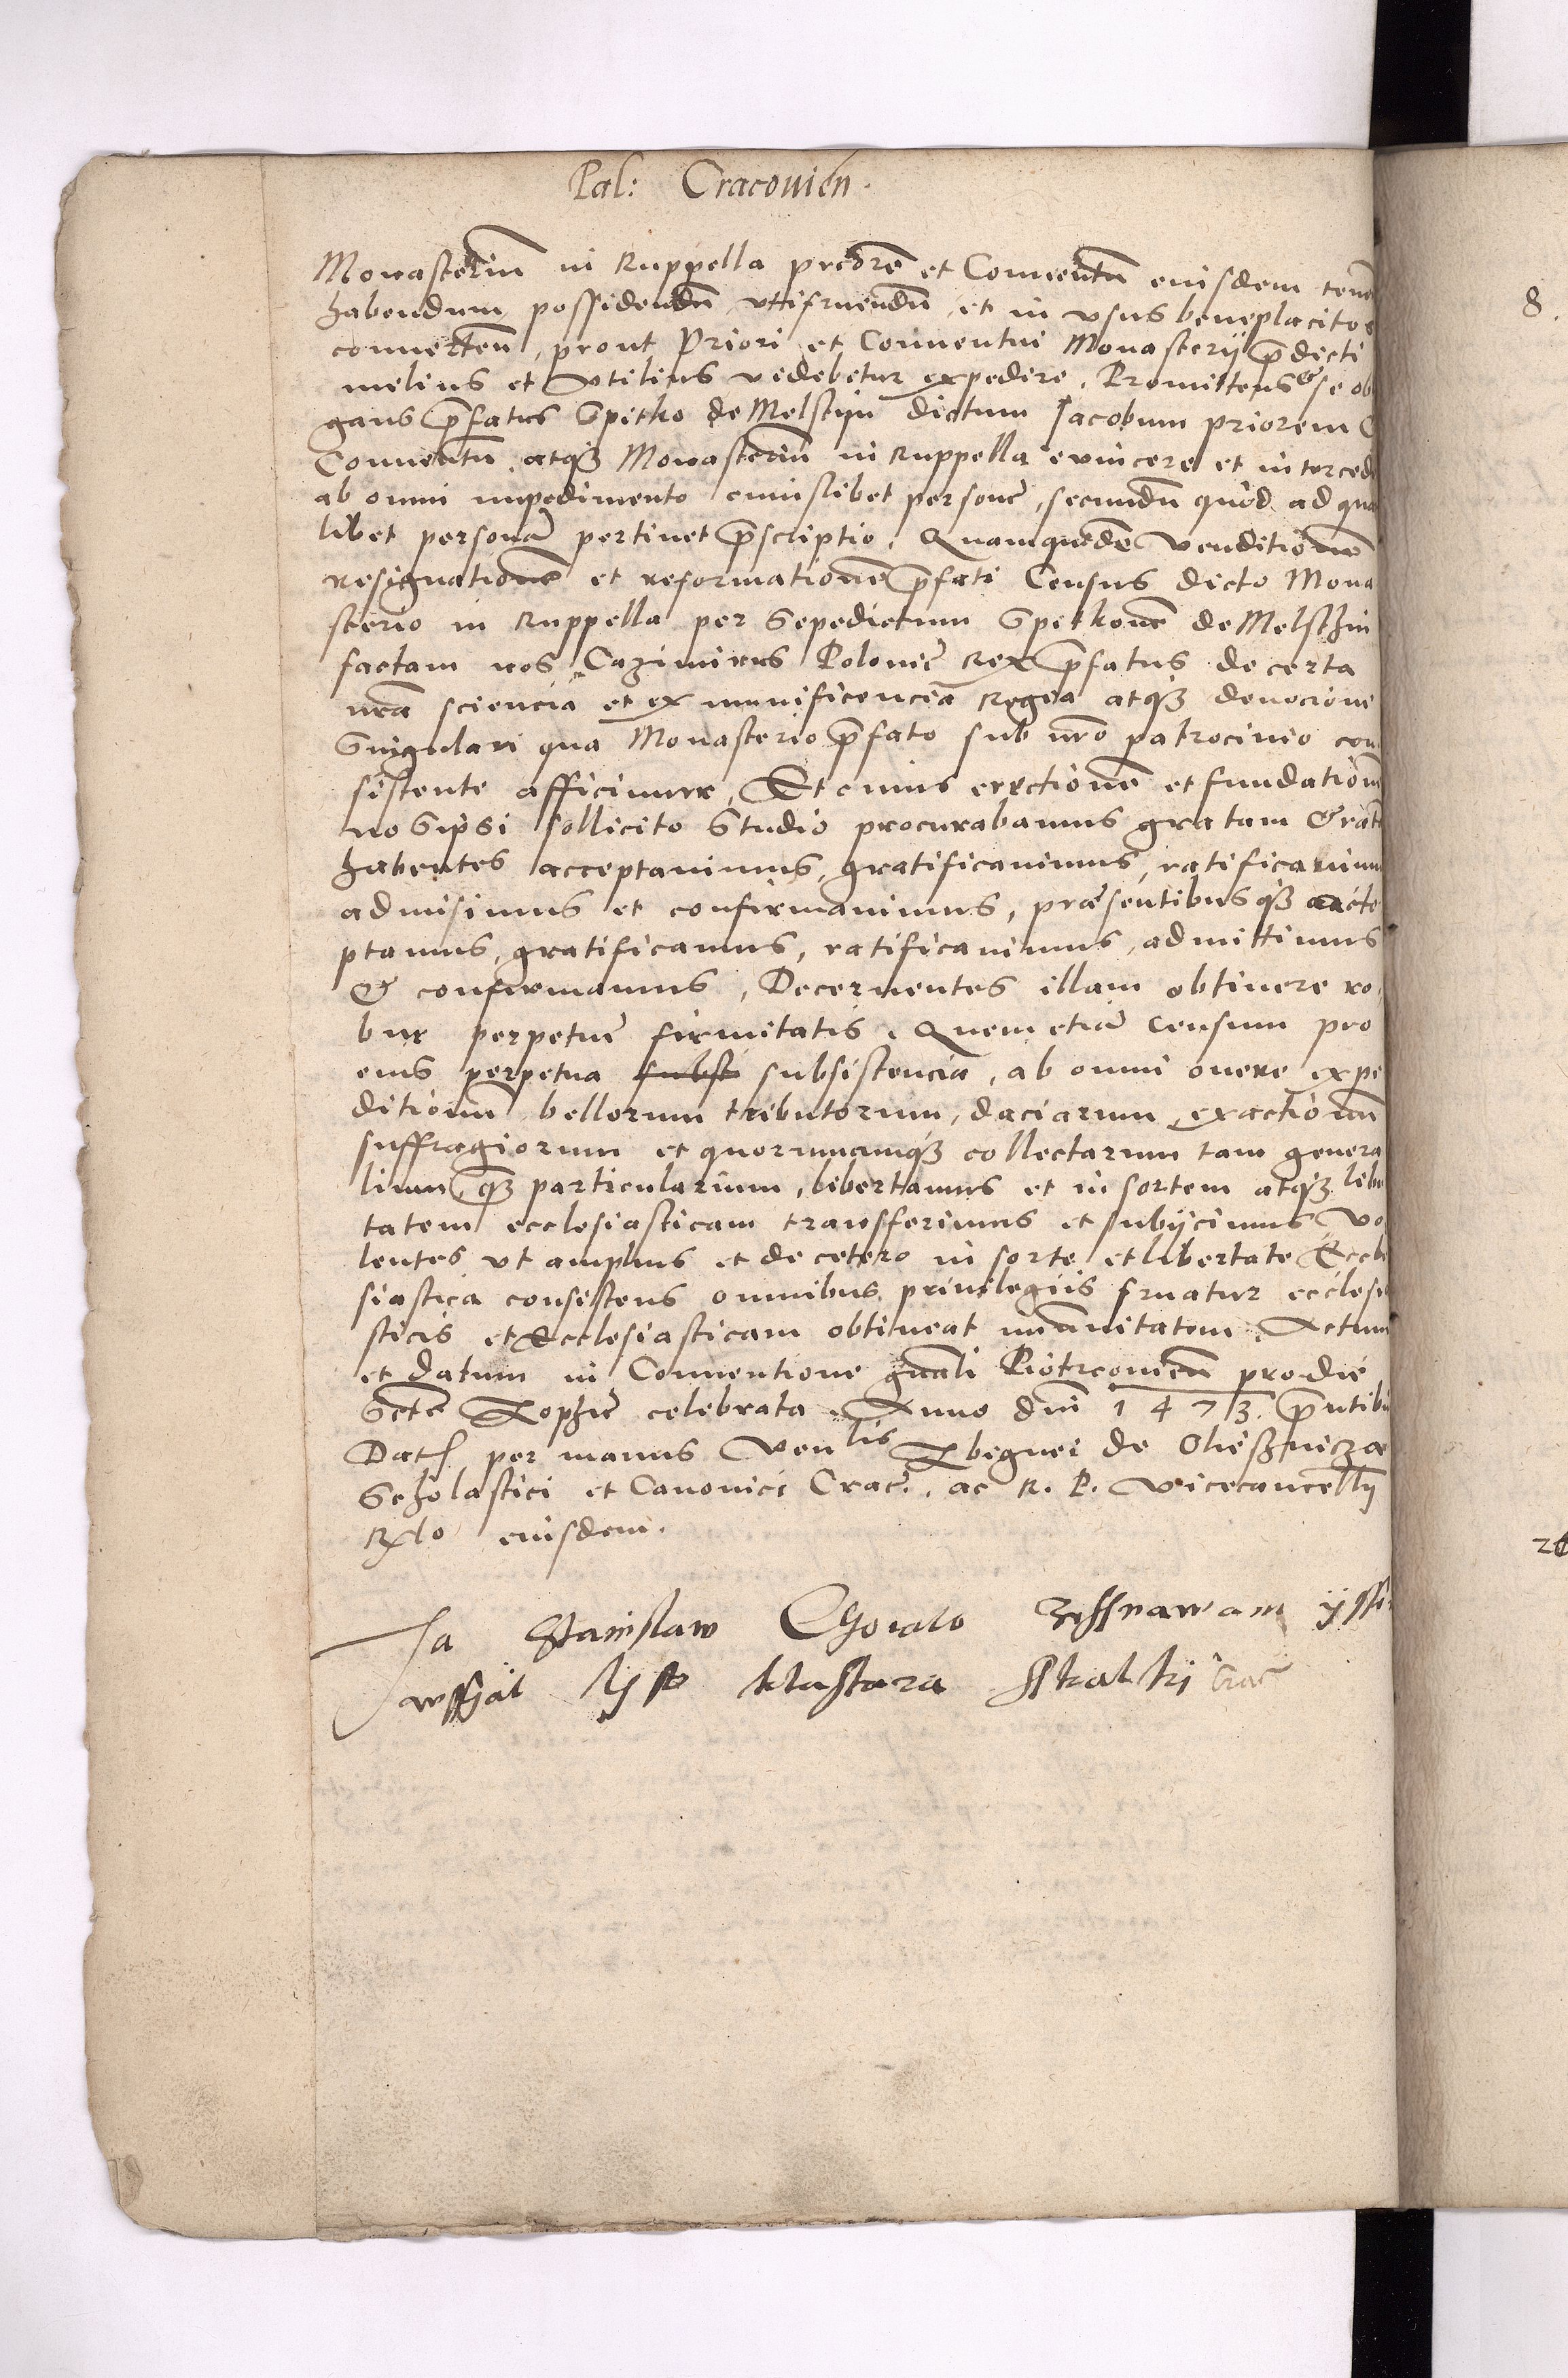 Pal: Cracouien.
Monasteriū in Ruppella priorē et Conuentū eiusdem tenen
habendum possidendū vtifruendū et in vsus beneplacitos
conuertēn, prout Priori et Conuentui Monasterij p̄dicti
melius et vtilius videbitur expedire. Promittens & se ob
gans p̄fatus Spitko de Melstijn dictum Jacobum priorem
Conuentū atq3 Monasteriū in Ruppella euincere et interced
ab omni impedimento cuiuslibet persone, secundū quod ad qua
libet personā pertinet p̄scriptio. Quamquidē venditionē
resignationē et reformationē p̄fati Census dicto Mona
sterio in Ruppella per Sepedictum Spitkonē de Melschin
factam nos Cazimirus Polonie Rex p̄fatus de certa
nrā sciencia et ex munificencia Regia atq3 deuocione
Singulari qua Monasterio p̄fato sub nrō patrocinio con
sistente afficimur, Et cuius erectionē et fundationē
nosipsi sollicito Studio procurabamus gratam & ratā
habentes acceptauimus, gratificauimus, ratificauimu
admisimus et confirmauimus, præsentibusq3 acce
ptamus, gratificamus, ratificauimus, admittimus
& confirmamus, Decernentes illam obtinere ro
bur perpetue firmitatis. Quem etiā Censum pro
eius perpetua subst subsistencia, ab omni onere expe
ditionū bellorum tributorum, daciarum, exactionū
suffragiorum et quorumcunq3 collectarum tam genera
lium, q̄3 particularium, libertamus et in sortem atq3 libe
tatem ecclesiasticam transferimus et subijcimus Vo
lentes vt amplius et de cetero in sorte et libertate Eccle
siastica consistens omnibus priuilegiis fruatur ecclesia
sticis et Ecclesiasticam obtineat imūnitatem. Actum
et datum in Conuentione gn̄ali Piotrcouien̄ pro die
Scte Zophie celebrata. Anno dn̄i 1473. p̄ntibu
Dat per manus Venlis Zbegnei de Olieszniczæ
Scholastici et Canonici Crac. ac R. P. Vicecancellij
Rlo eiusdem.
Ja Stanislaw